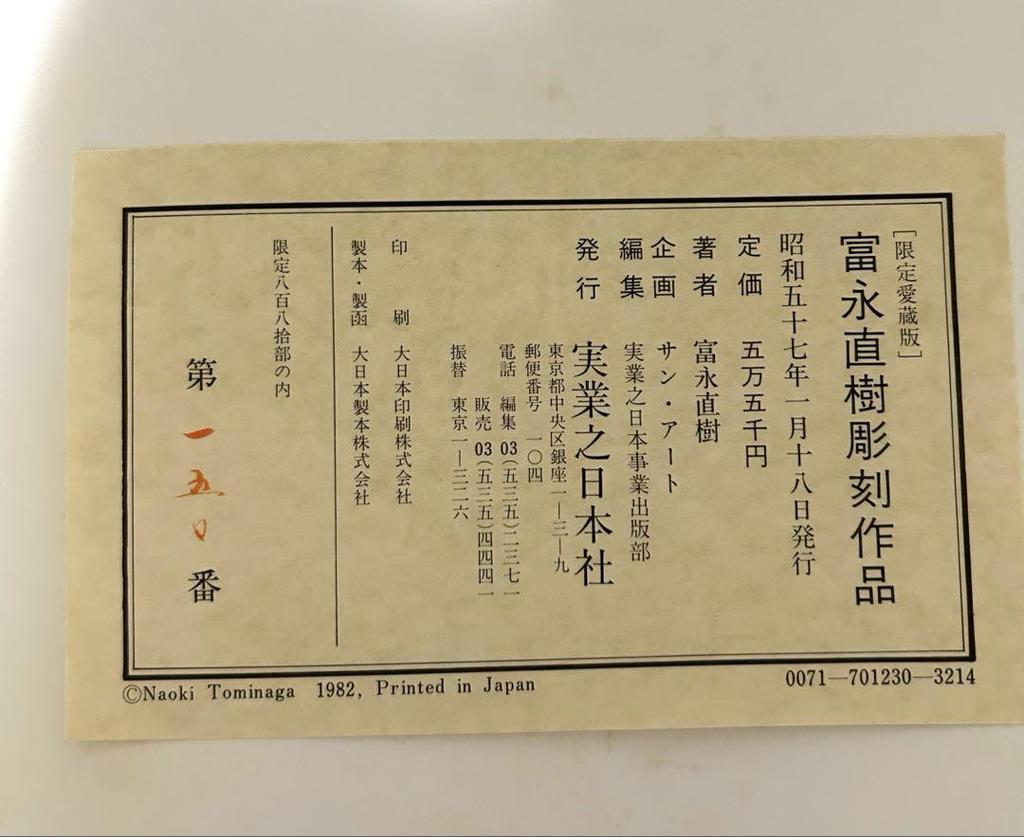 ［限定愛蔵版］
富永直樹彫刻作品
昭和五十七年一月十八日発行
定価　五万五千円
著者　富永直樹
企画　サン・アート
編集　実業之日本事業出版部
発行　実業之日本社
東京都中央区銀座一—三—九
郵便番号　一〇四
電話　編集　03(五三五)二三七一
販売　03(五三五)四四四一
振替　東京一—三二六
印刷　大日本印刷株式会社
製本・製函　大日本製本株式会社
限定八百八拾部の内
第一五〇番
©Naoki Tominaga 1982, Printed in Japan
0071—701230—3214